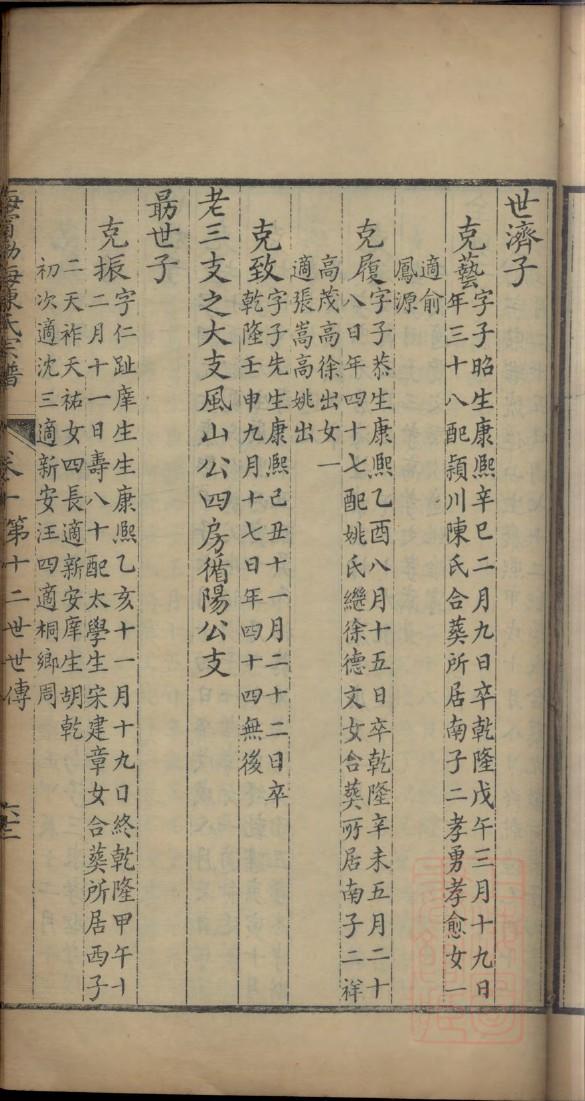 世濟子
克藝字子昭生康熙辛巳二月九日卒乾隆戊午三月十九日
年三十八配潁川陳氏合葬所居南子二孝勇孝愈女一
適俞
鳳源
克履字子恭生康熙乙酉八月十五日卒乾隆辛未五月二十
八日年四十七配姚氏繼徐德文女合葬所居南子二祥
高茂高徐出女一
適張嵩高姚出
克致字子先生康熙己丑十一月二十二日卒
乾隆壬申九月十七日年四十四無後
老三支之大支風山公四房循陽公支
勗世子
克振字仁趾庠生生康熙乙亥十一月十九日終乾隆甲午十
二月十一日壽八十配太學生宋建章女合葬所居西子
二天祚天祐女四長適新安庠生胡乾
初次適沈三適新安汪四適桐鄉周
海寧渤海陳氏宗譜
第十二世世傳